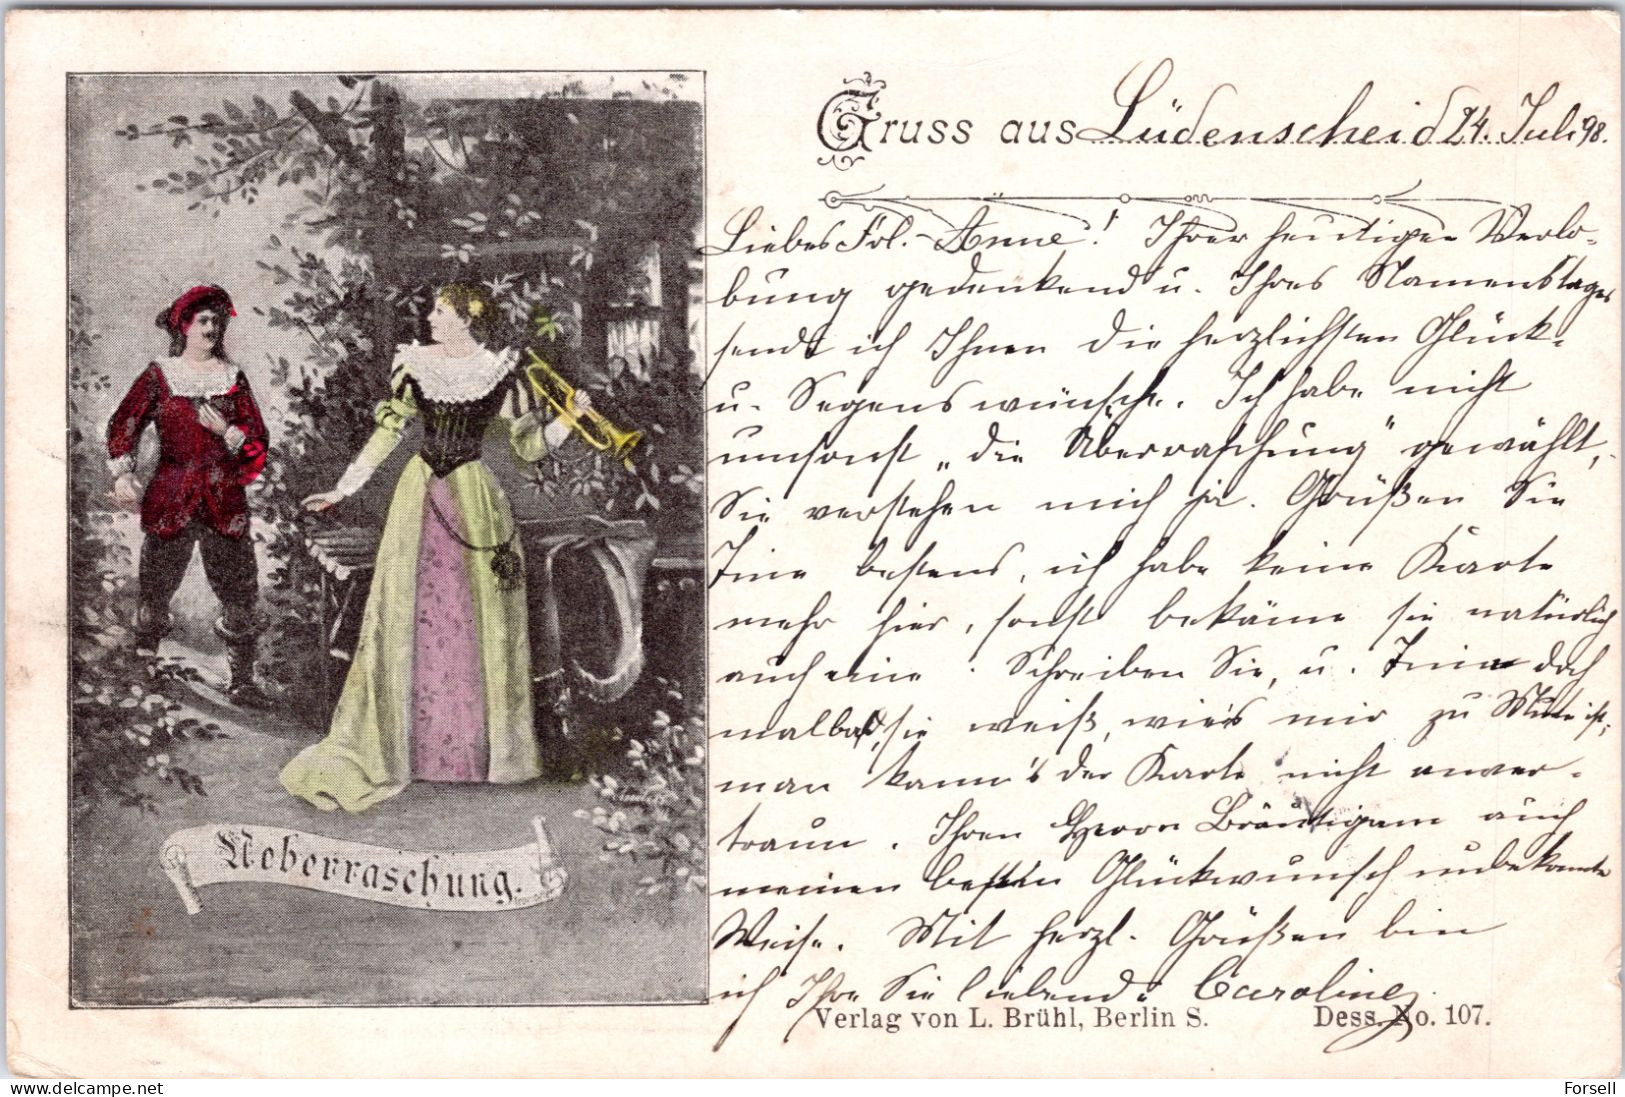 Gruss aus Lüdenscheid 24. Juli 98.
Liebes Frl. Anne! Ihrer heutigen Verlo-
bung gedenkend u. Ihres Namenstages
sende ich Ihnen die herzlichsten Glück-
u. Segenswünsche. Ich habe nicht
umsonst „die Überraschung" gewählt,
Sie verstehen mich ja. Grüßen Sie
Tine bestens, ich habe keine Karte
mehr hier, sonst bekäme sie natürlich
auch eine. Schreiben Sie, u. Tine doch
mal bald, sie weiß, wie's mir zu Mute ist,
man kann's der Karte nicht anver-
traun. Ihren Herrn Bräutigam auch
meinen besten Glückwunsch unbekannter
Weise. Mit herzl. Grüßen bin
ich Ihre Sie liebende Caroline
Ueberraschung.
Verlag von L. Brühl, Berlin S. Dess. No. 107.
delcampe.net
Forsell